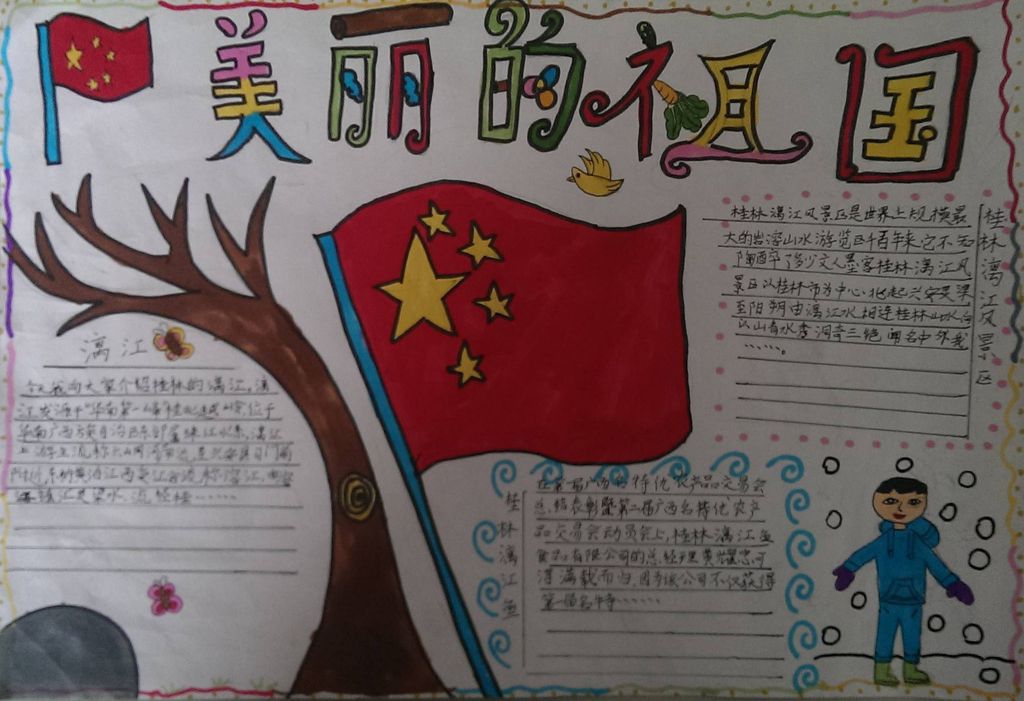 美丽的祖国
漓江
我向大家介绍桂林的漓江,漓
江发源于"华南第一峰"桂北越城岭,位于
华南广西
上游主流称六
桂林漓江风景区
桂林漓江风景区是世界上规模最
大的岩溶山水游览区千百年来它不知
陶醉了多少文人墨客桂林漓江风
景区以桂林市为中心北起兴安灵渠
至阳朔由漓江水相连桂林山水向
以山青水秀洞奇三绝闻名中外我
……。
桂林漓江鱼
在首届广西名特优农产品交易会
总结表彰暨第二届广西名特优农产
品交易会动员会上,桂林漓江鱼
食品有限公司的总经理黄
满载而归,因为该公司不仅获得
第一届名特……